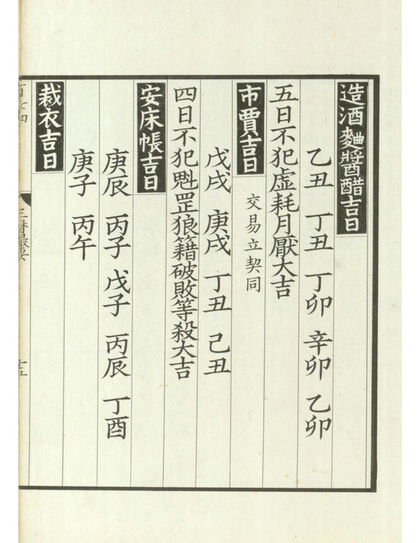 造酒麯醬醋吉日
乙丑 丁丑 丁卯 辛卯 乙卯
五日不犯虛耗月厭大吉
市賈吉日 交易立契同
戊戌 庚戌 丁丑 己丑
四日不犯魁罡狼籍破敗等殺大吉
安床帳吉日
庚辰 丙子 戊子 丙辰 丁酉
庚子 丙午
裁衣吉日